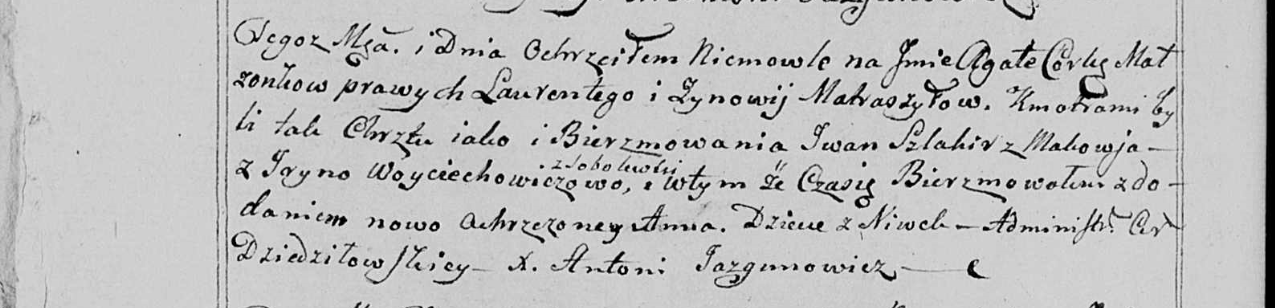 Tegoz Mća. i Dnia Ochrzciłem Niemowle na Jmie Agate Corkę Mał
zonkow prawych Laurentego i Zynowij Matraszyłow. Kmotrami by
li tak Chrztu iako i Bierzmowania Jwan Szlakir z Makowja—
z Jryno Woyciechowiczowo, z Sobolewki i wtym że Czasię Bierzmowałem z do-
daniem nowo ochrzczoney Anna. Dzieie z Niwek — Administr. Cer
Dziedziłowskiey — X. Antoni Jazgunowicz —